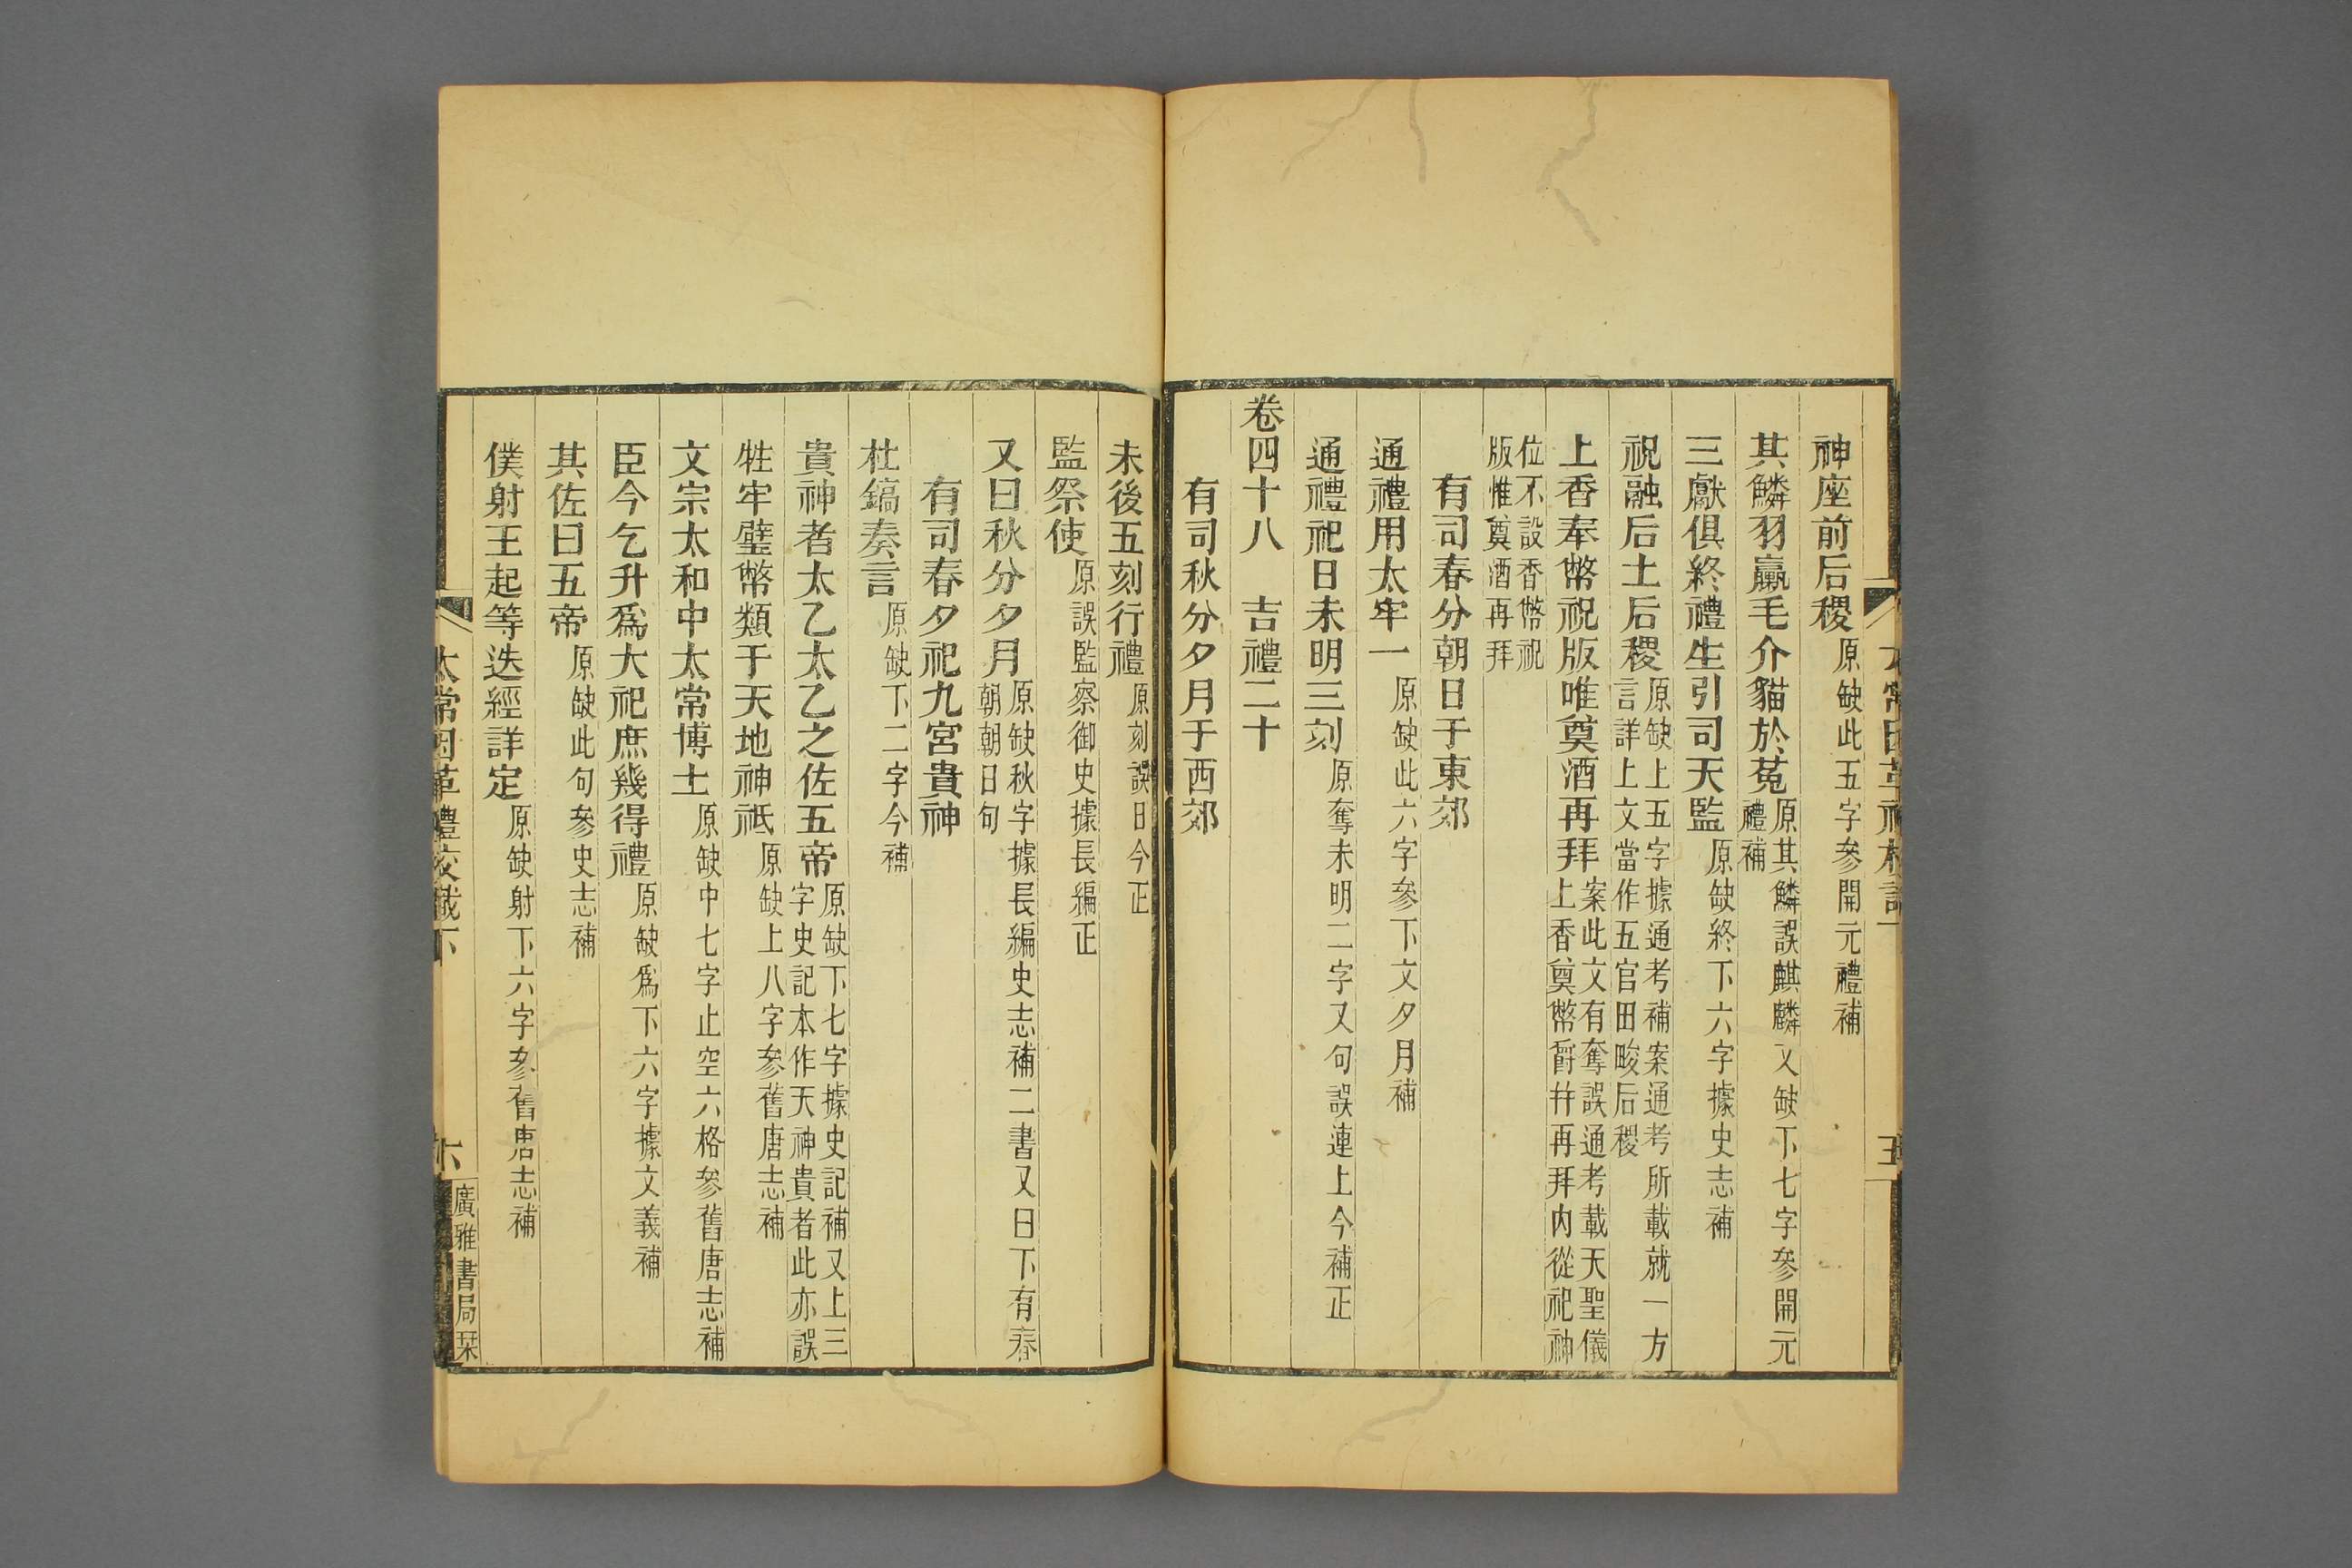 神座前后稷原缺此五字參開元禮補
其鱗羽臝毛介貓於菟原其鱗誤麒麟又缺下七字參開元禮補
三獻俱終禮生引司天監原缺終下六字據史志補
祝融后土后稷原缺上五字據通考補案通考所載就一方言詳上文當作五官田畯后稷
上香奉幣祝版唯奠酒再拜案此文有奪誤通考載天聖儀上香奠幣爵并再拜內從祀神
位不設香幣祝版惟奠酒再拜
有司春分朝日于東郊
通禮用太牢一原缺此六字參下文夕月補
通禮祀日未明三刻原奪未明二字又句誤連上今補正
卷四十八　吉禮二十
有司秋分夕月于西郊
未後五刻行禮原刻誤日今正
監祭使原誤監察御史據長編正
又曰秋分夕月原缺秋字據長編史志補二書又曰下有春朝朝日句
有司春夕祀九宮貴神
杜鎬奏言原缺下二字今補
貴神者太乙太乙之佐五帝原缺下七字據史記補又上三字史記本作天神貴者此亦誤
牲牢璧幣類于天地神祗原缺上八字參舊唐志補
文宗太和中太常博士原缺中七字止空六格參舊唐志補
臣今乞升爲大祀庶幾得禮原缺爲下六字據文義補
其佐曰五帝原缺此句參史志補
僕射王起等迭經詳定原缺射下六字參舊唐志補
太常因革禮校識下　六　廣雅書局栞